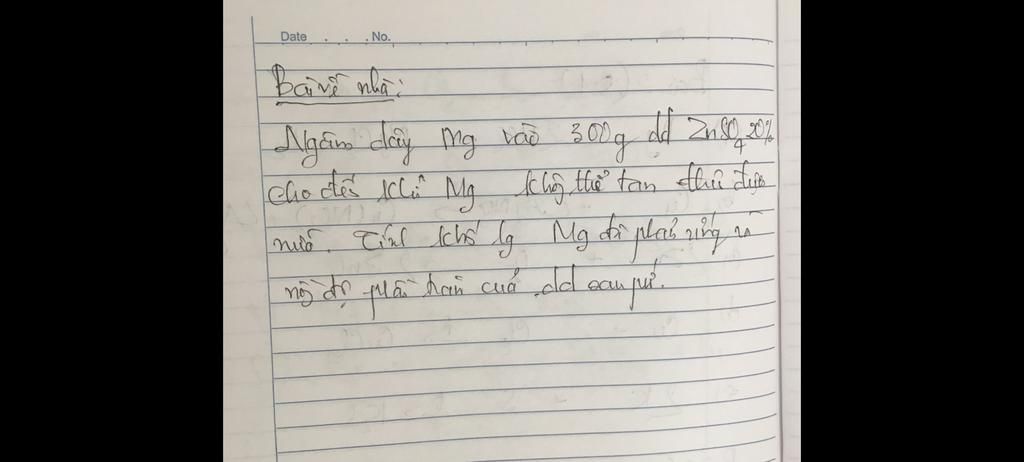 Date . . . .No.
Bài về nhà:
Ngâm dây Mg vào 300g dd ZnSO4 20%
cho đến khi Mg không thể tan thêm được
nữa. Tính khối lg Mg đã phản ứng và
nồng độ phần trăm của dd sau pứ.